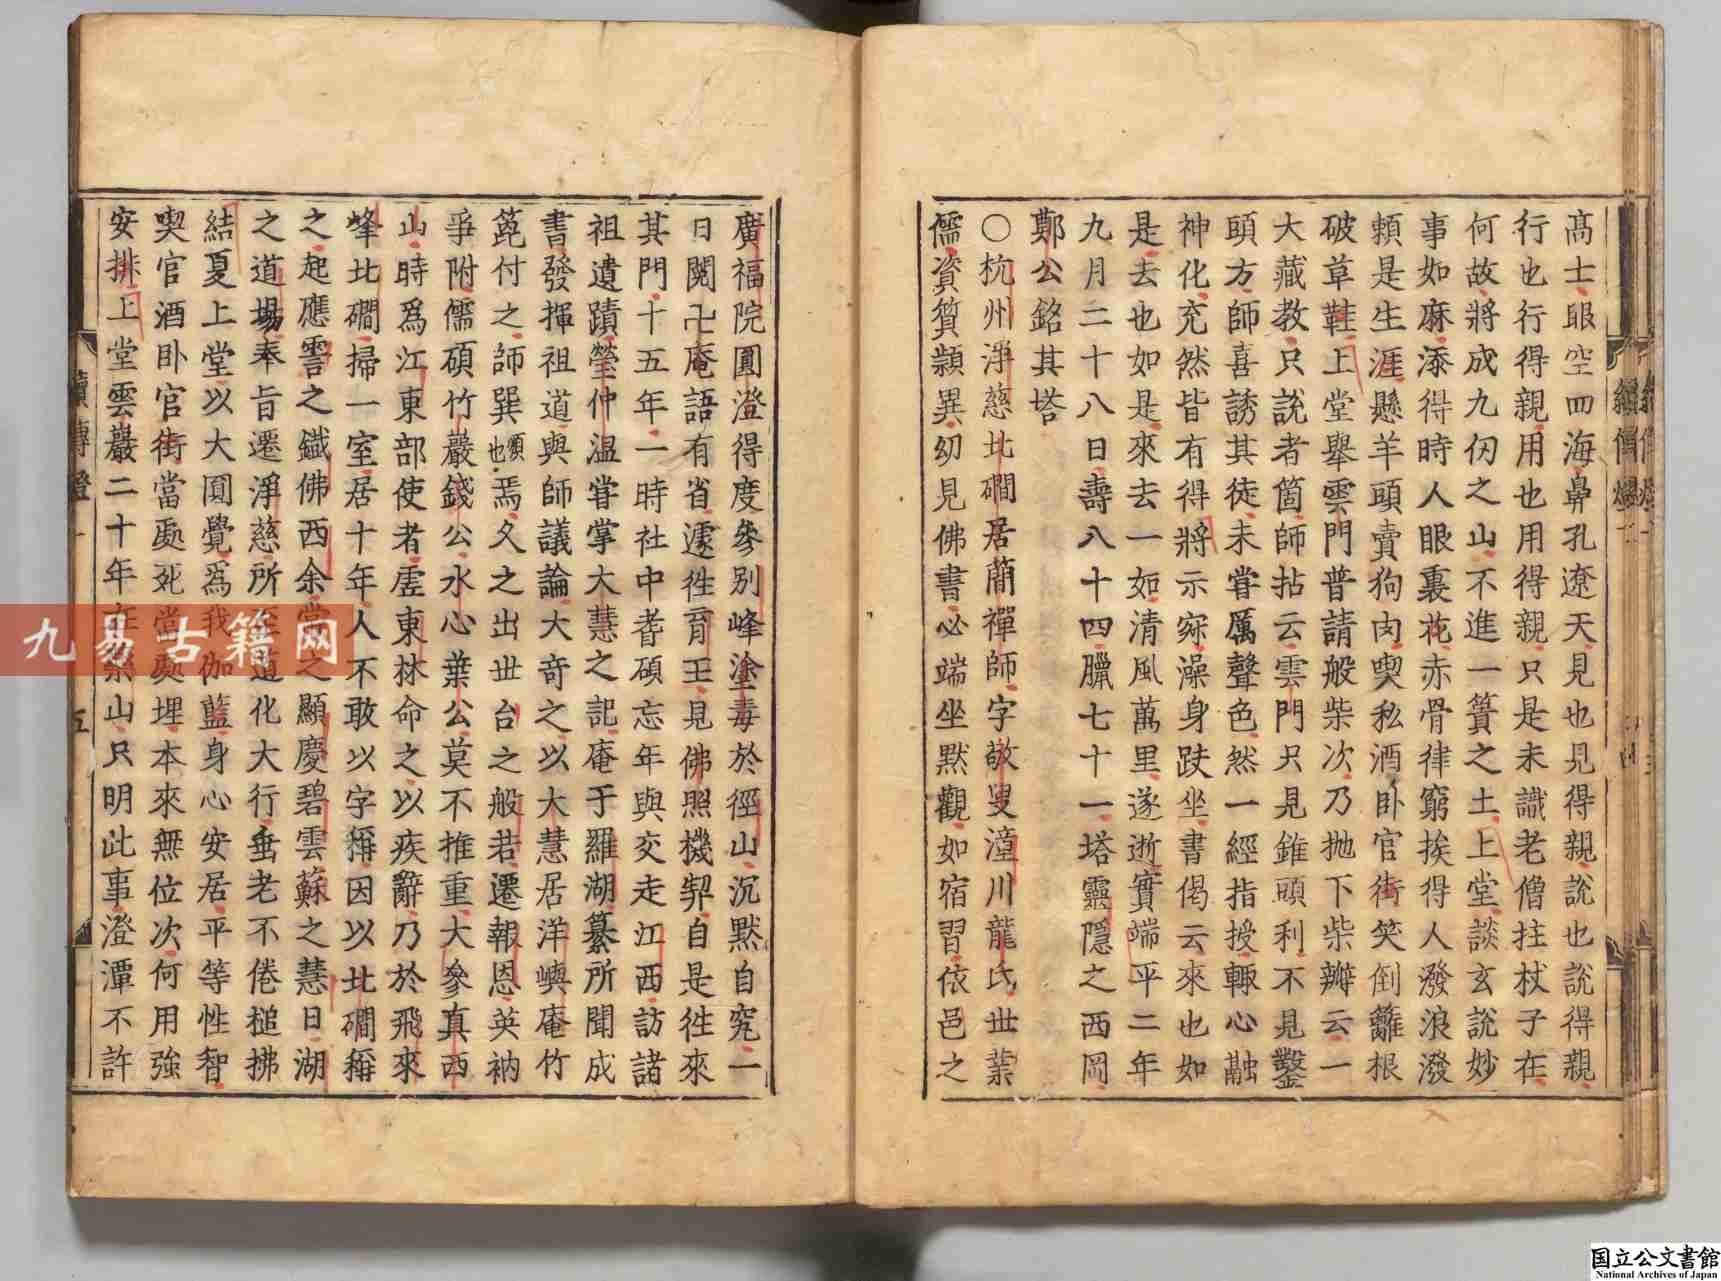 高士眼空四海鼻孔遼天見也見得親說也說得親
行也行得親用也用得親只是未識老僧拄杖子在
何故將成九仞之山不進一簣之土上堂談玄說妙
事如麻添得時人眼裏花赤骨律窮挨得人潑浪潑
賴是生涯懸羊頭賣狗肉喫私酒臥官街笑倒籬根
破草鞋上堂舉雲門普請般柴次乃拋下柴瓣云一
大藏教只說者箇師拈云雲門只見錐頭利不見鑿
頭方師喜誘其徒未甞厲聲色然一經指授輙心融
神化充然皆有得將示寂澡身趺坐書偈云來也如
是去也如是來去一如清風萬里遂逝實端平二年
九月二十八日壽八十四臘七十一塔靈隱之西岡
鄭公銘其塔
〇杭州淨慈北磵居蕳禪師字敬叟潼川龍氏世業
儒資質頴異幼見佛書必端坐默觀如宿習依邑之
廣福院圓澄得度參別峰塗毒於徑山沉默自究一
日閱卍庵語有省遽徃育王見佛照機契自是徃來
其門十五年一時社中耆碩忘年與交走江西訪諸
祖遺蹟瑩仲溫甞掌大慧之記庵于羅湖纂所聞成
書發揮祖道與師議論大奇之以大慧居洋嶼庵竹
篦付之師巽頷也焉久之出世台之般若遷報恩英衲
爭附儒碩竹巖錢公水心葉公莫不推重大參真西
山時爲江東部使者虗東林命之以疾辭乃於飛來
峰北磵掃一室居十年人不敢以字稱因以北磵稱
之起應霅之鐵佛西余常之顯慶碧雲蘇之慧日湖
之道場奉旨遷淨慈所至道化大行垂老不倦槌拂
結夏上堂以大圓覺爲我伽藍身心安居平等性智
喫官酒臥官街當處死當處埋本來無位次何用強
安排上堂雲巖二十年在藥山只明此事澄潭不許
續傳燈
五
九易古籍网
国立公文書館
National Archives of Japan